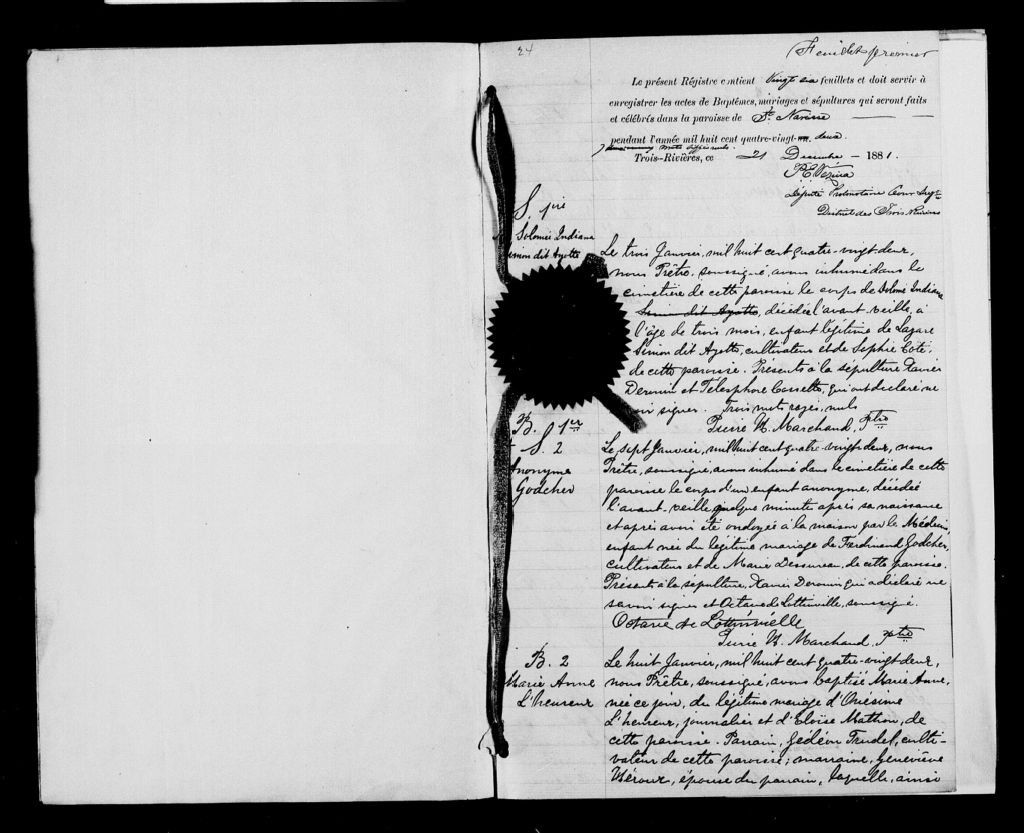 24
Feuillet premier
Le présent Régistre contient Vingt six feuillets et doit servir à
enregistrer les actes de Baptêmes, mariages et sépultures qui seront faits
et célébrés dans la paroisse de St. Narcisse
pendant l'année mil huit cent quatre-vingt- deux.
mots nuls
Trois-Rivières, ce 21 Décembre - 1881.
Député Protonotaire Cour Supre
District des Trois Rivières
S. 1re
Solomé Indiana
Simon dit Ayotte
Le trois Janvier, mil huit cent quatre-vingt-deux,
nous Prêtre, soussigné, avons inhumé dans le
cimetière de cette paroisse le corps de Solomé Indiana
Simon dit Ayotte, décédée l'avant-veille, à
l'âge de trois mois, enfant légitime de Lazare
Simon dit Ayotte, cultivateur et de Sophie Coté,
de cette paroisse. Présents à la sépulture Xavier
Derouin et Télesphore Cossette, qui ont déclaré ne
signer. Trois mots rayés, nuls
Pierre H. Marchand, Ptre
B. 1er
+ S. 2
Anonyme
Godcher
Le sept Janvier, mil huit cent quatre-vingt-deux, nous
Prêtre, soussigné, avons inhumé dans le cimetière de cette
paroisse le corps d'un enfant anonyme, décédé
l'avant-veille quelque minutes après sa naissance
et après avoir été ondoyé à la maison par le Médecin,
enfant née du légitime mariage de Ferdinand Godcher,
cultivateur et de Marie Dessureau, de cette paroisse.
Présents à la sépulture, Xavier Derouin qui a déclaré ne
savoir signer et Octave de Lottinville, soussigné.
Octave de Lottinville
Pierre H. Marchand, Ptre
B. 2
Marie Anne
L'heureux
Le huit Janvier, mil huit cent quatre-vingt-deux,
nous Prêtre, soussigné, avons baptisé Marie Anne,
née ce jour, du légitime mariage d'Onésime
L'heureux, journalier et d'Eloïse Mathon, de
cette paroisse. Parrain, Gédéon Trudel, culti-
vateur de cette paroisse; marraine, Geneviève
épouse du parrain, laquelle, ainsi